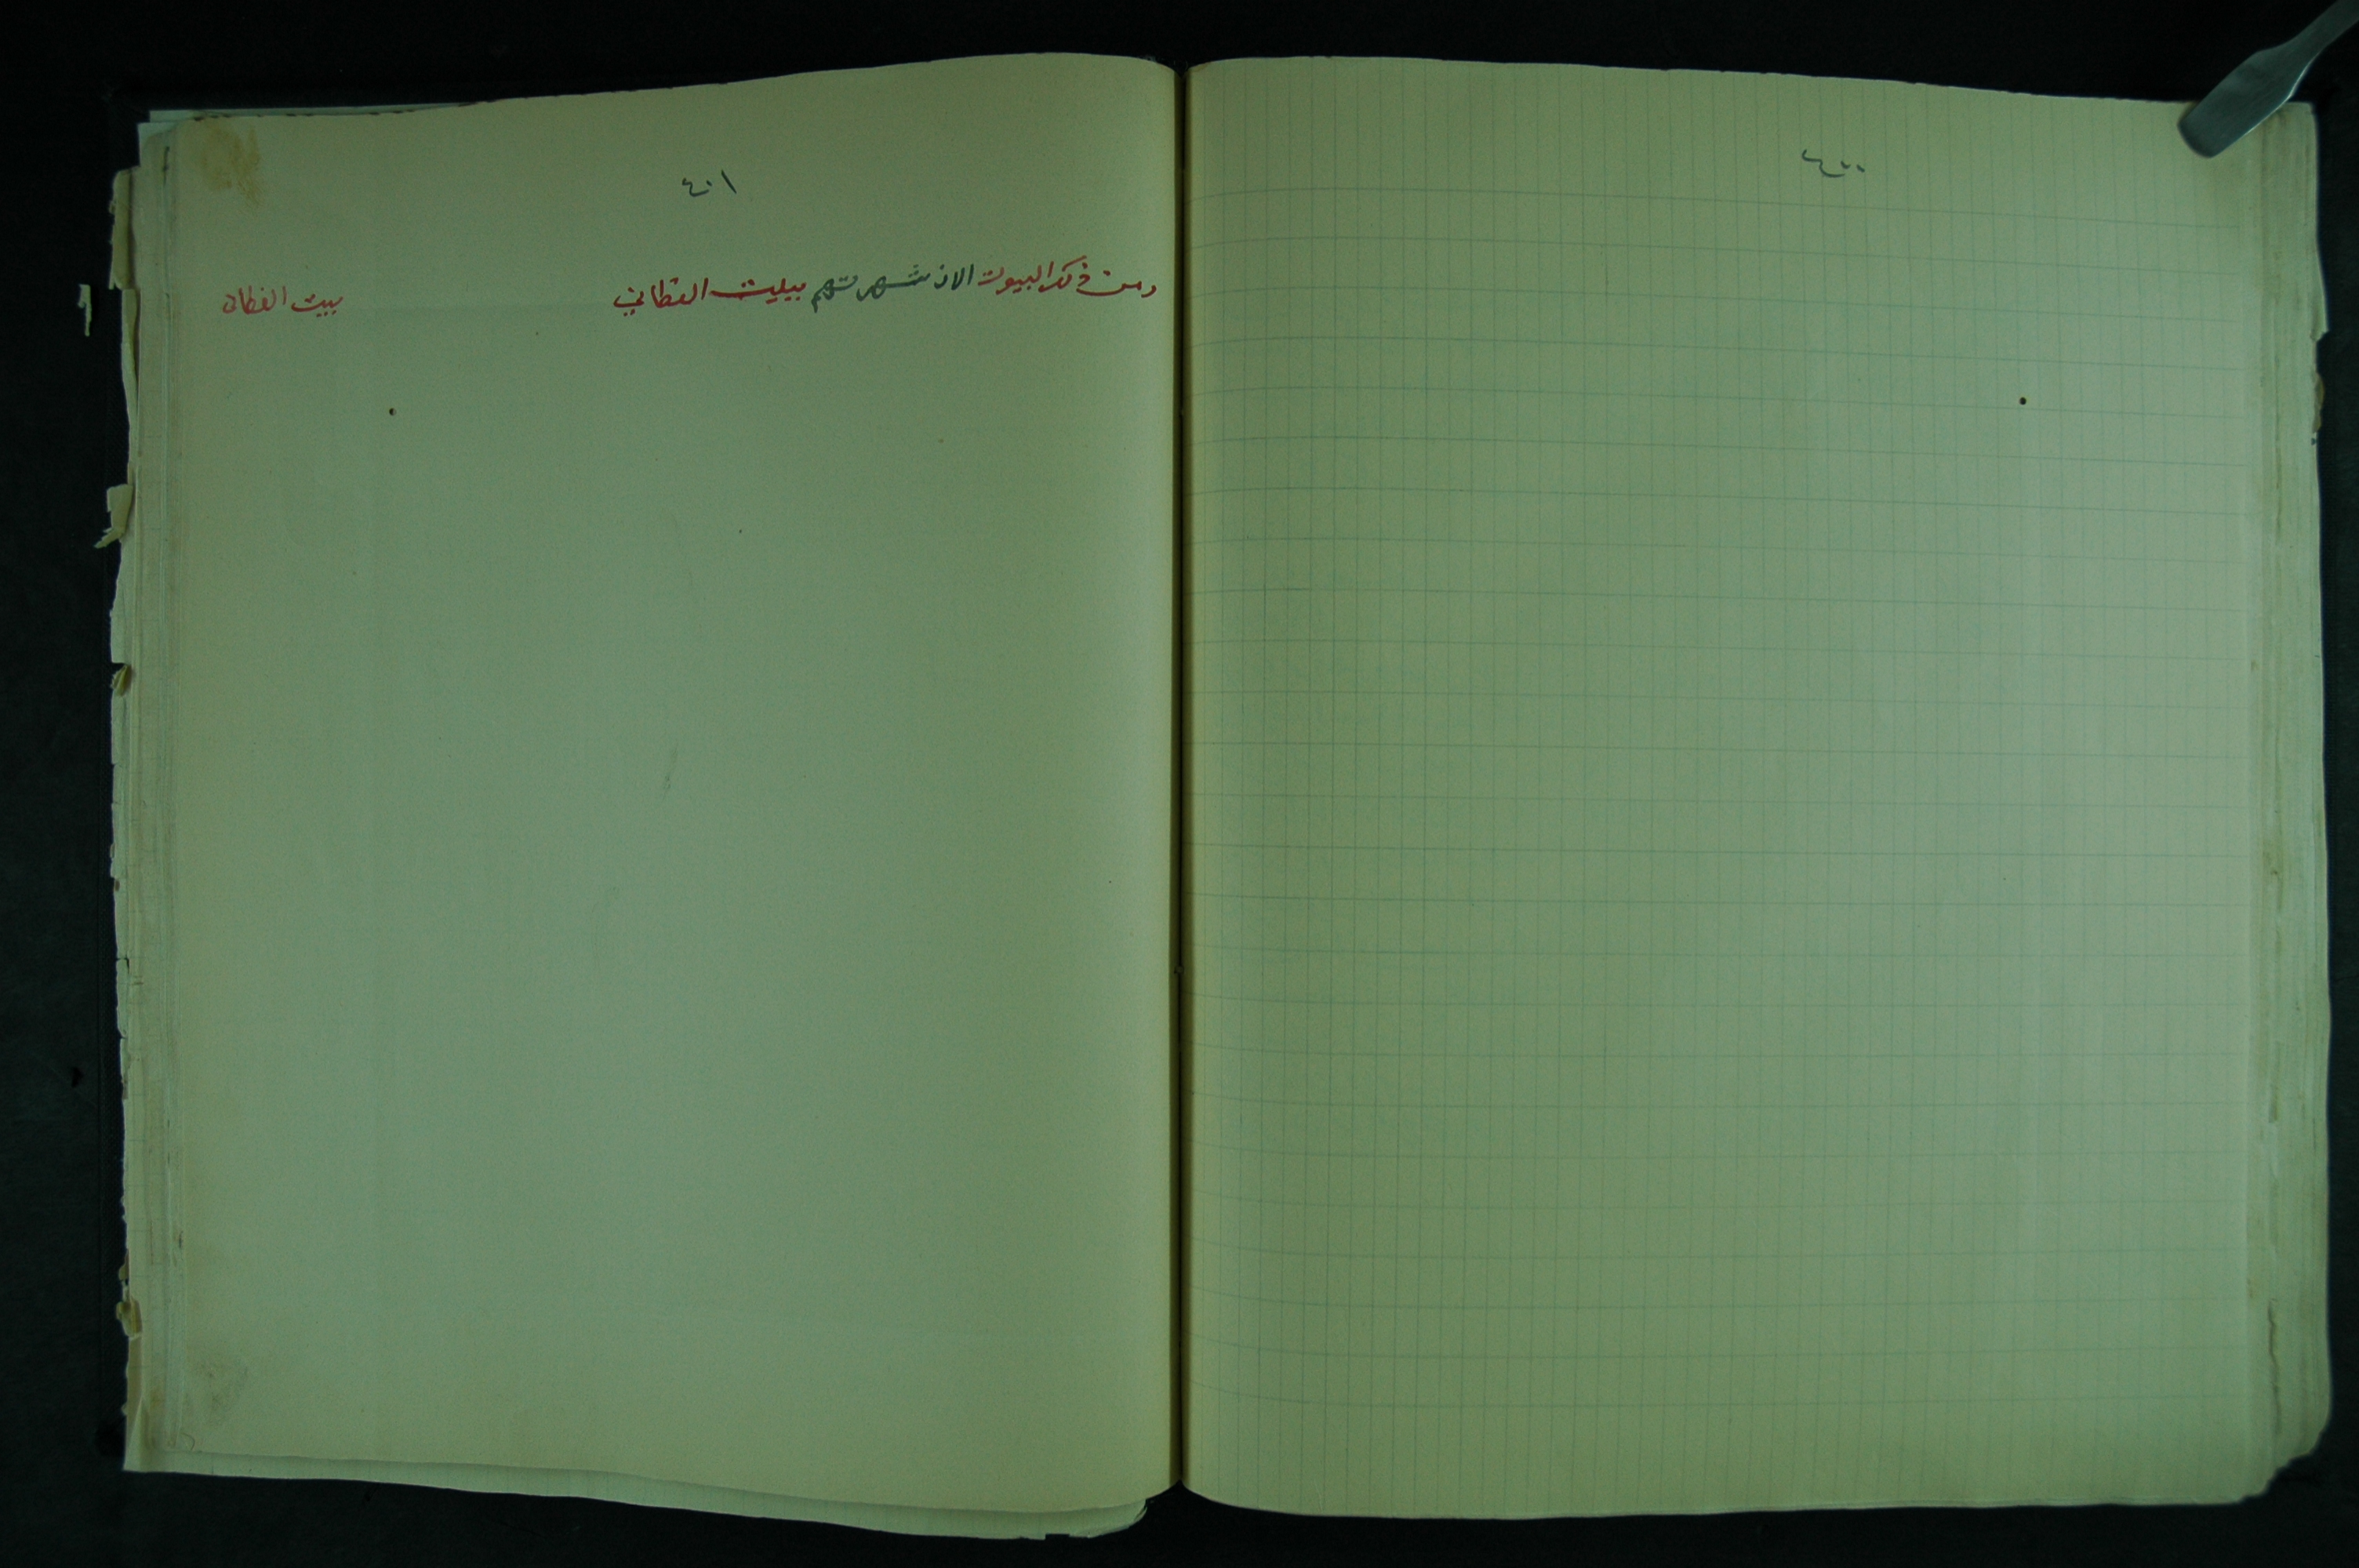 ٤٠٠
٤٠١
ومن ذكر البيوت الان شهرتهم ببيت القطاني
بيت القطانى